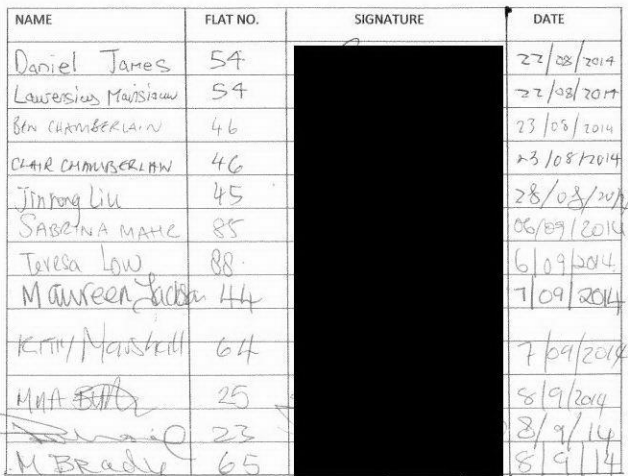 NAME FLAT NO. SIGNATURE DATE
Daniel James 54 22/08/2014
54 22/08/2014
BEN CHAMBERLAIN 46 23/08/2014
CLAIR CHAMBERLAIN 46 23/08/2014
Jinrong Liu 45 28/08/2014
SABRINA 85 06/09/2014
Teresa Low 88. 6/09/2014
Maureen Jackson 44 7/09/2014
Kitty Marshall 64 7/09/2014
25 8/9/2014
23 8/9/14
M BRady 65 8/9/14